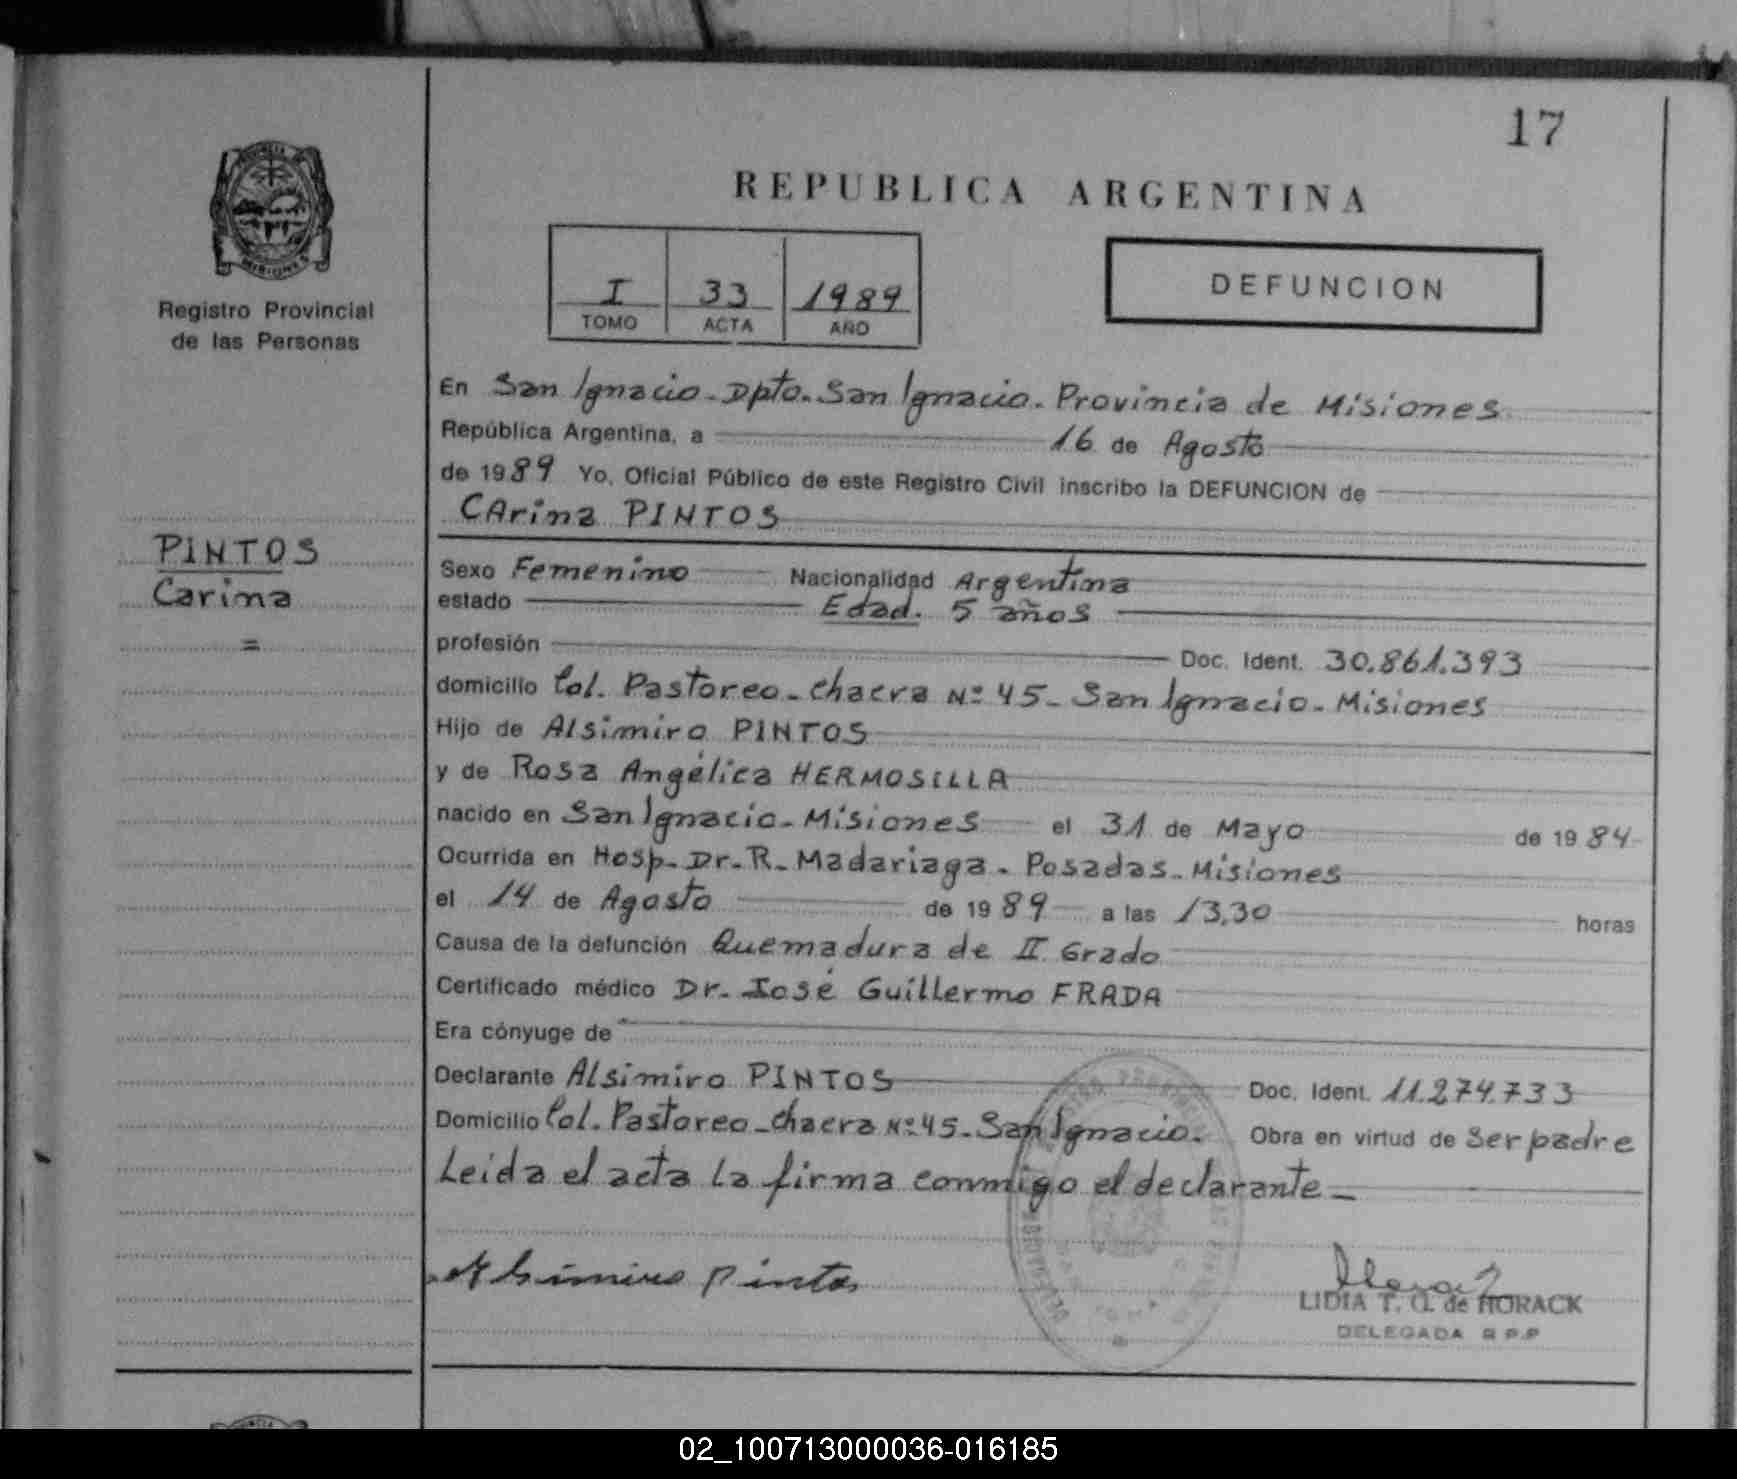 17
PROVINCIA DE
MISIONES
Registro Provincial
de las Personas
REPUBLICA ARGENTINA
I 33 1989
TOMO ACTA AÑO
DEFUNCION
En San Ignacio - Dpto. San Ignacio. Provincia de Misiones
República Argentina, a 16 de Agosto
de 1989 Yo, Oficial Público de este Registro Civil inscribo la DEFUNCION de
CArina PINTOS
PINTOS
Carina
=
Sexo Femenino Nacionalidad Argentina
estado Edad. 5 años
profesión Doc. Ident. 30.861.393
domicilio Col. Pastoreo - Chacra Nº 45 - San Ignacio - Misiones
Hijo de Alsimiro PINTOS
y de Rosa Angélica HERMOSILLA
nacido en San Ignacio - Misiones el 31 de Mayo de 1984
Ocurrida en Hosp. Dr. R. Madariaga. Posadas - Misiones
el 14 de Agosto de 1989 a las 13,30 horas
Causa de la defunción Quemadura de II Grado
Certificado médico Dr. José Guillermo FRADA
Era cónyuge de
Declarante Alsimiro PINTOS Doc. Ident. 11.274.733
Domicilio Col. Pastoreo - Chacra Nº 45 - San Ignacio. Obra en virtud de ser padre
Leida el acta la firma conmigo el declarante -
Alsimiro Pintos
LIDIA T. O. de HORACK
DELEGADA R.P.P
02_100713000036-016185